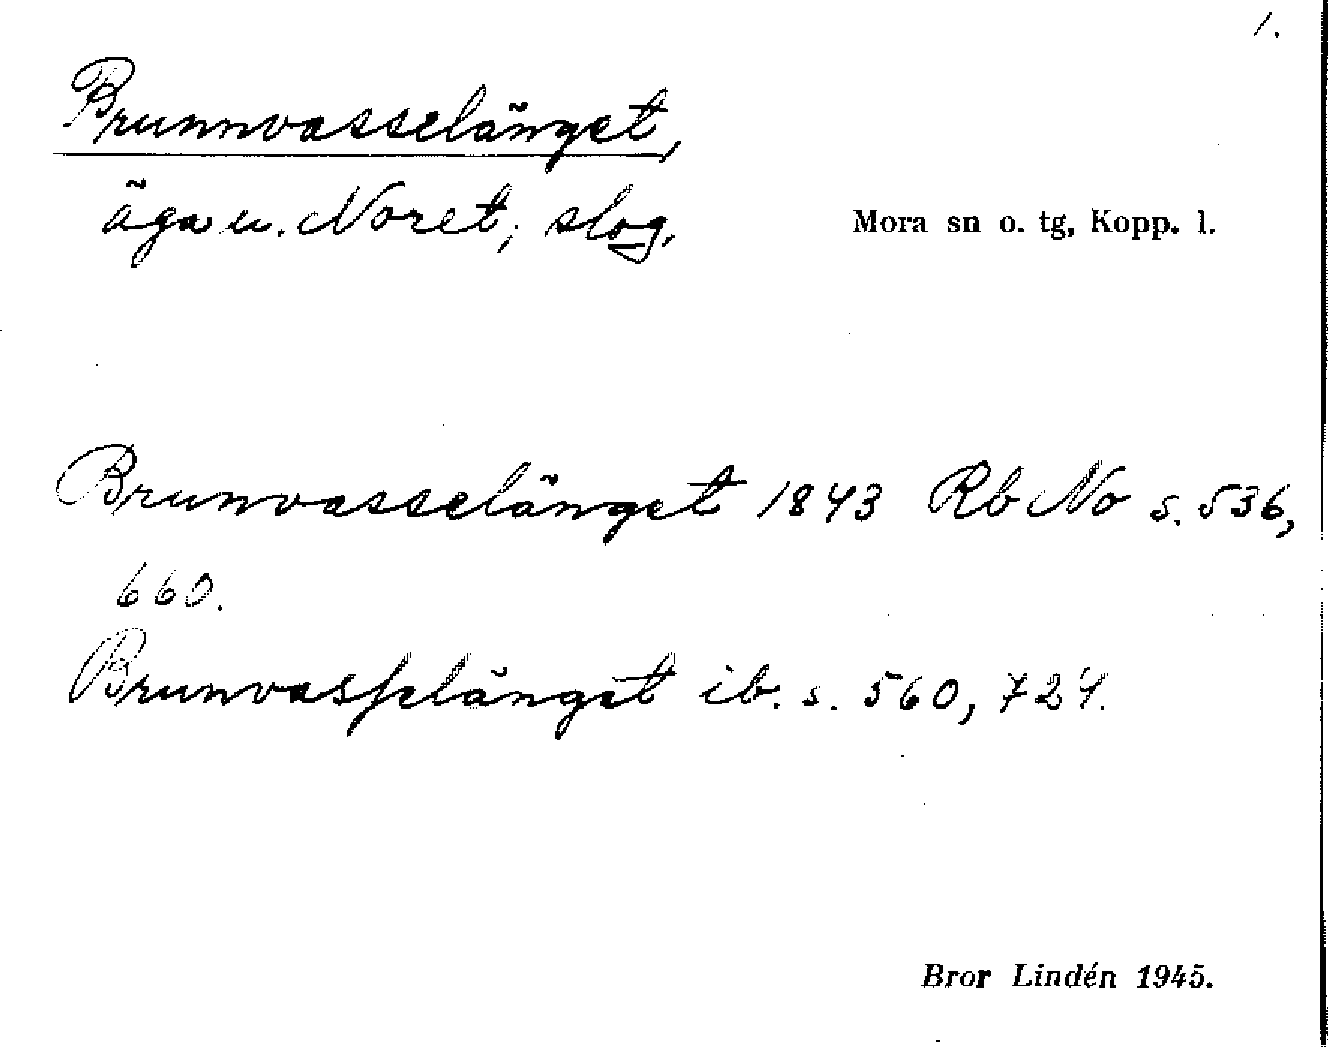 1.
Brunnvasselänget,
äga u. Noret; slog.
Mora sn o. tg, Kopp. l.
Brunvasselänget 1843 Rb No s. 536,
660.
Brunvasſelänget ib. s. 560, 727.
Bror Lindén 1945.